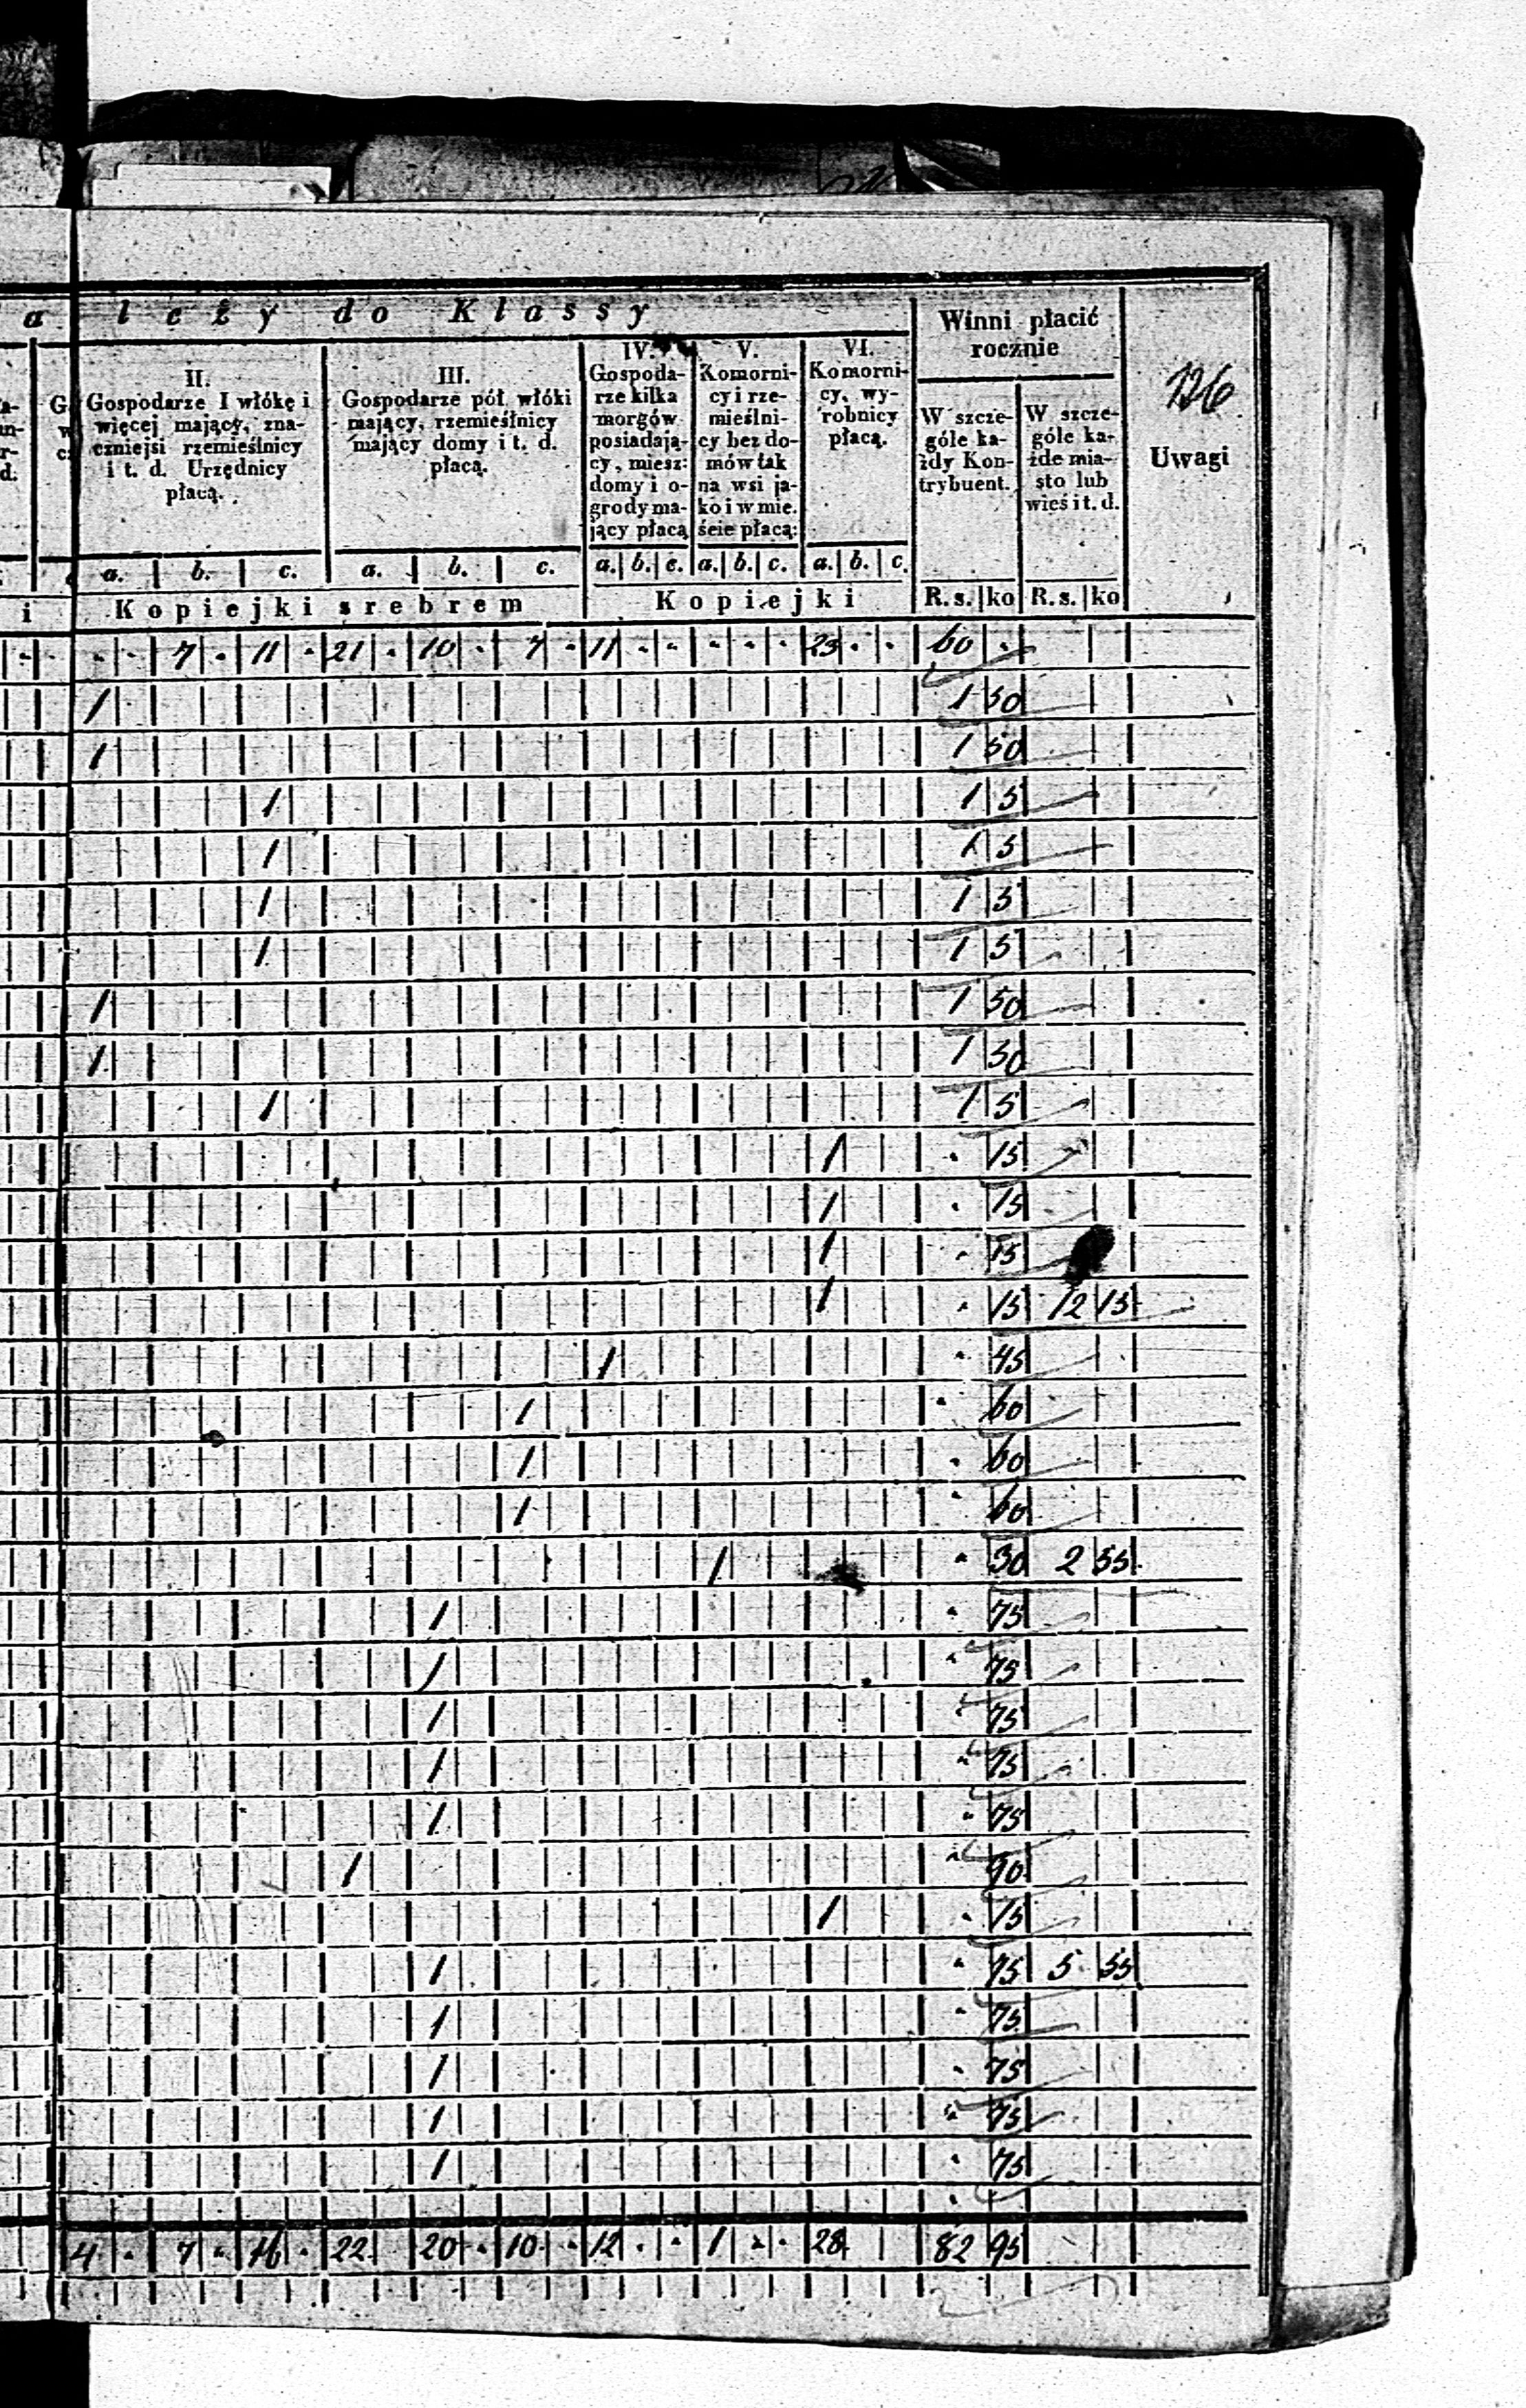 a leży do Klassy
Winni płacić rocznie
126
Uwagi
II.
Gospodarze I włókę i
więcej mający, zna-
czniejsi rzemieślnicy
i t. d. Urzędnicy
płacą.
III.
Gospodarze pół włóki
mający, rzemieślnicy
mający domy i t. d.
płacą.
IV.
Gospoda-
rze kilka
morgów
posiadają-
cy, miesz:
domy i o-
grody ma-
jący płacą
V.
Komorni-
cy i rze-
mieślni-
cy bez do-
mów tak
na wsi ja-
ko i w mie.
ście płacą:
VI.
Komorni-
cy, wy-
robnicy
płacą.
W szcze-
góle ka-
żdy Kon-
trybuent.
W szcze-
góle ka-
żde mia-
sto lub
wieś i t. d.
a. b. c. a. b. c. a. b. c. a. b. c. a. b. c.
i Kopiejki srebrem Kopiejki R. s. ko R. s. ko
. . 7 . 11 . 21 . 10 . 7 . 11 . . . . . 23 . . 60 .
1 1 50
1 1 50
1 1 5
1 1 5
1 1 5
1 1 5
1 1 50
1 1 50
1 1 5
1 . 15
1 . 15
1 . 15
1 . 15 12 15
1 . 45
1 . 60
1 . 60
1 . 60
1 . 30 2 55
1 . 75
1 . 75
1 . 75
1 . 75
1 . 75
1 . 90
1 . 15
1 . 75 5 55
1 . 75
1 . 75
1 . 75
1 . 75
4 . 7 . 16 . 22 20 . 10 . 12 . . 1 . . 28 82 95